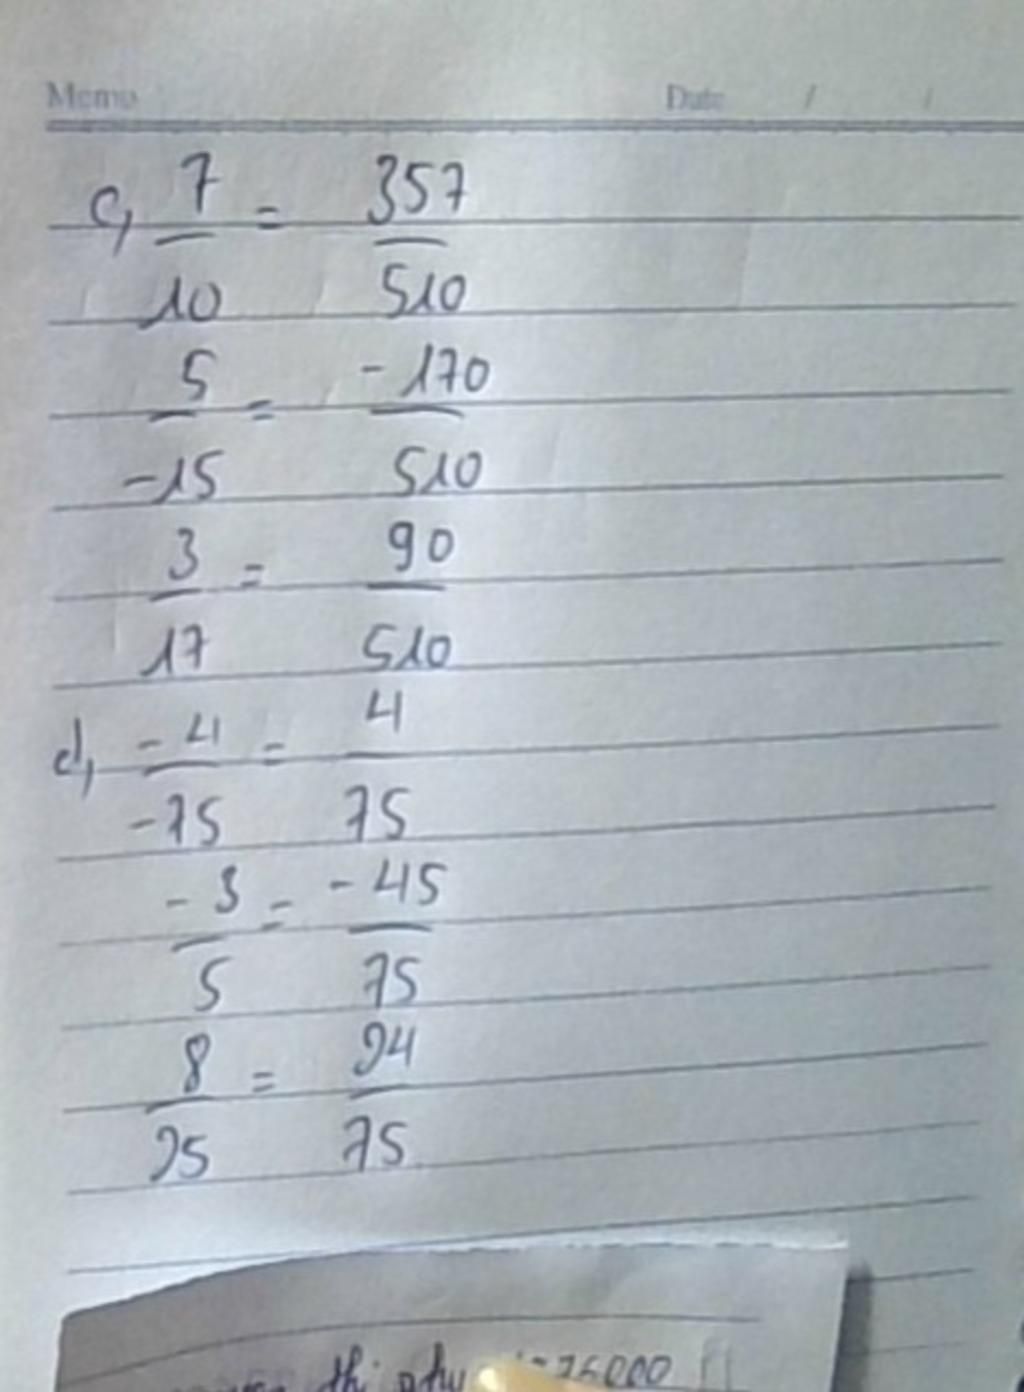 Memo Date / /
c, 7/10 = 357/510
5/-15 = -170/510
3/17 = 90/510
d, -4/-75 = 4/75
-3/5 = -45/75
8/25 = 24/75
thì